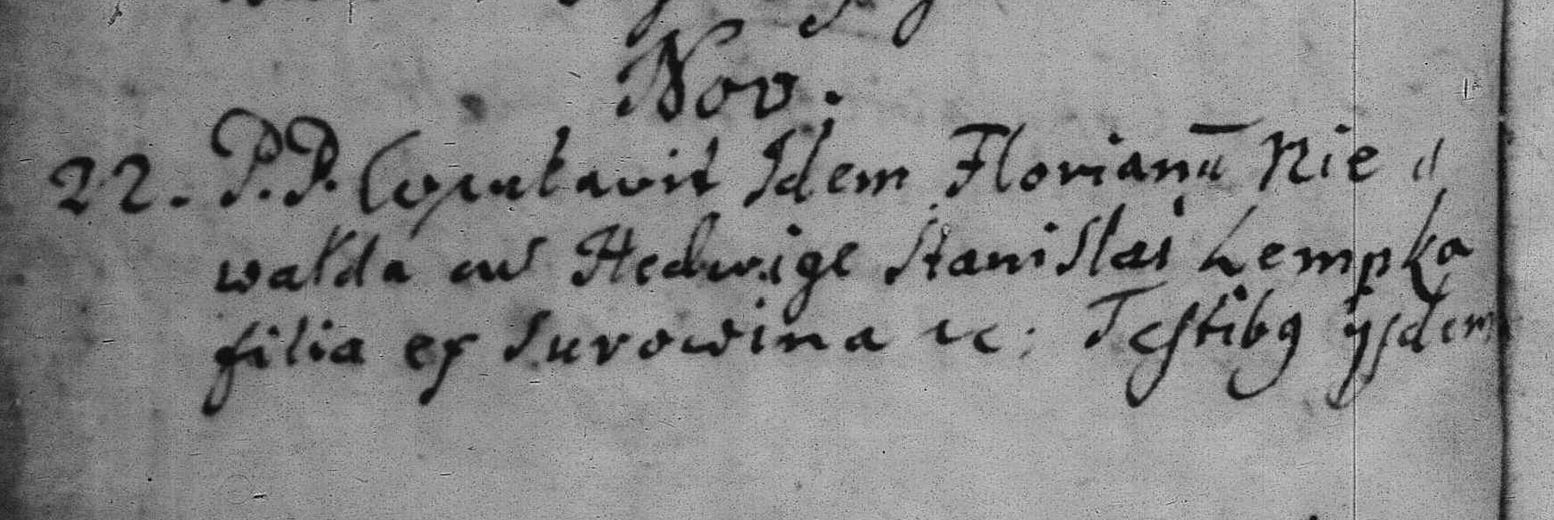 Nov.
22. P.P. Copulavit Idem Florianū Nie
walda cū Hedwige Stanislai Lempka
filia ex Surowina &c: Testibꝯ ijsdem